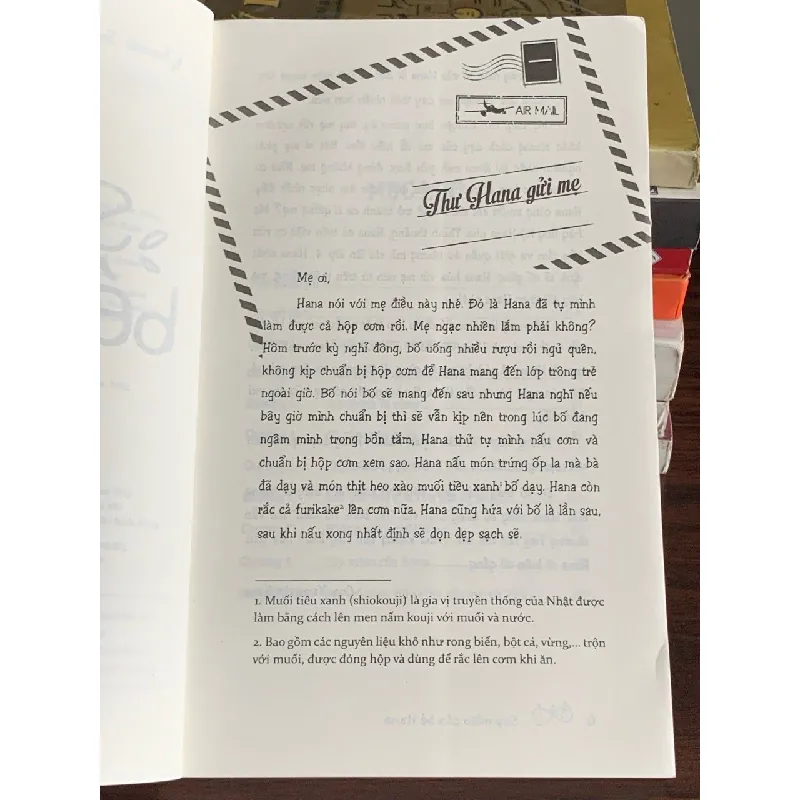 AIR MAIL
Thư Hana gửi mẹ
Mẹ ơi,
Hana nói với mẹ điều này nhé. Đó là Hana đã tự mình
làm được cả hộp cơm rồi. Mẹ ngạc nhiên lắm phải không?
Hôm trước kỳ nghỉ đông, bố uống nhiều rượu rồi ngủ quên,
không kịp chuẩn bị hộp cơm để Hana mang đến lớp trông trẻ
ngoài giờ. Bố nói bố sẽ mang đến sau nhưng Hana nghĩ nếu
bây giờ mình chuẩn bị thì sẽ vẫn kịp nên trong lúc bố đang
ngâm mình trong bồn tắm, Hana thử tự mình nấu cơm và
chuẩn bị hộp cơm xem sao. Hana nấu món trứng ốp la mà bà
đã dạy và món thịt heo xào muối tiêu xanh¹ bố dạy. Hana còn
rắc cả furikake² lên cơm nữa. Hana cũng hứa với bố là lần sau,
sau khi nấu xong nhất định sẽ dọn dẹp sạch sẽ.
1. Muối tiêu xanh (shiokouji) là gia vị truyền thống của Nhật được
làm bằng cách lên men nấm kouji với muối và nước.
2. Bao gồm các nguyên liệu khô như rong biển, bột cá, vừng,... trộn
với muối, được đóng hộp và dùng để rắc lên cơm khi ăn.